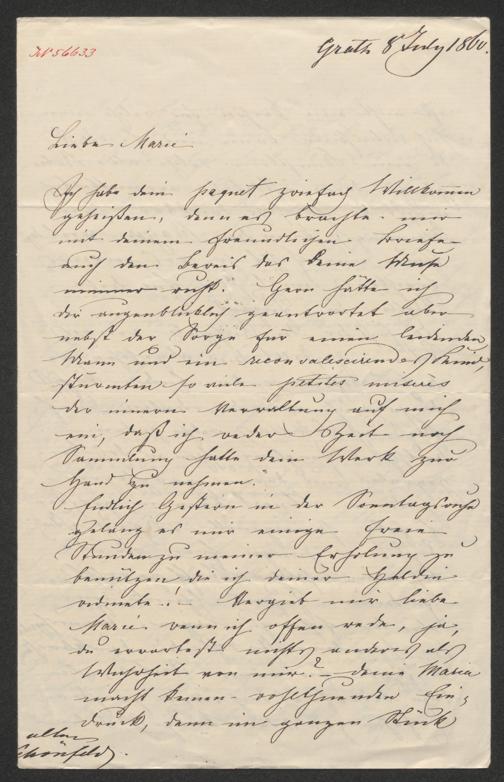 N 56633
Grätz 8 July 1860.
Liebe Marie
Ich habe dein paquet zwiefach Willkommen
geheißen, denn es brachte mir
mit deinem freundlichen Briefe
auch den Beweis das Deine Muse
nimmer ruht. Gern hätte ich
dir augenblicklich geantwortet aber
nebst der Sorge für einen leidenden
Mann und ein reconvalescirendes Kind,
stürmten so viele petites misères
der innern Verwaltung auf mich
ein, daß ich weder Zeit noch
Sammlung hatte dein Werk zur
Hand zu nehmen.
Endlich Gestern in der Sonntagsruhe
gelang es mir einige freie
Stunden zu meiner Erholung zu
benützen die ich deiner Heldin
widmete! – Vergieb mir liebe
Marie wenn ich offen rede, ja,
du erwartest nichts anderes als
Wahrheit von mir? – deine Maria
macht keinen wohlthuenden Ein-
druck, denn im ganzen Stück
alten
Schönfeld.